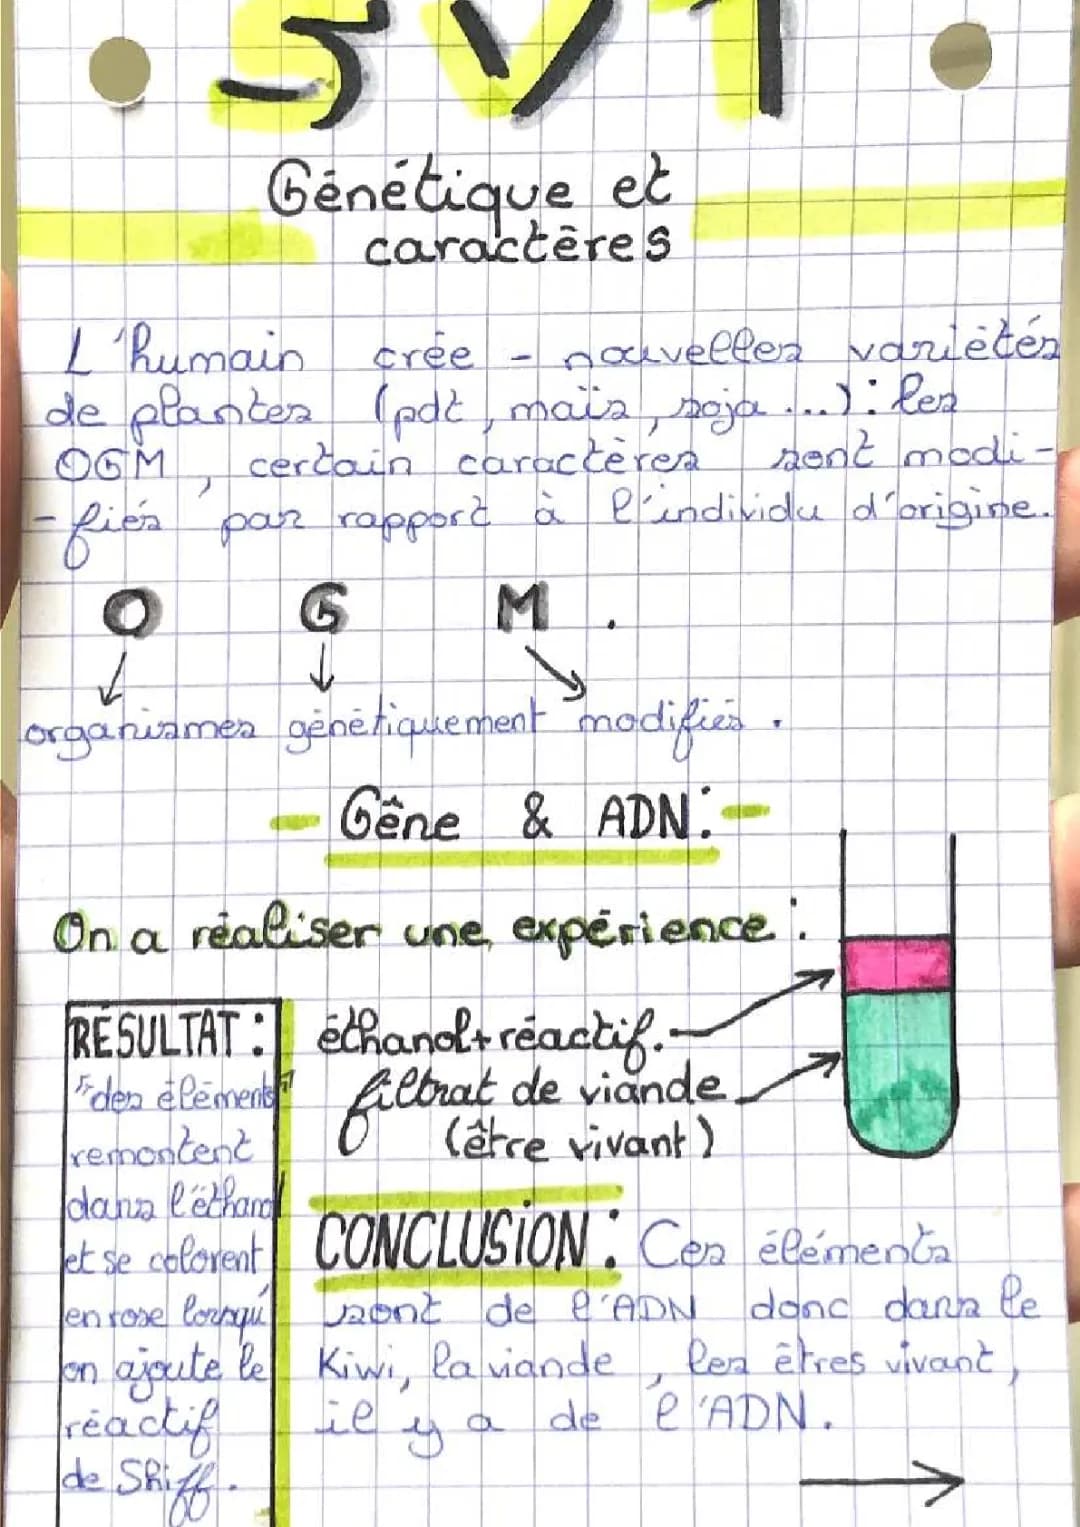 SVT
Génétique et
caractères
L'humain crée - nouvelles variétés
de plantes (pdt, maïs, soja ...) : les
OGM, certain caractères sont modi-
-fiés par rapport à l'individu d'origine.
O G M .
organismes génétiquement modifiés .
- Gêne & ADN : -
On a réaliser une expérience :
éthanol + réactif.
filtrat de viande
(être vivant)
RÉSULTAT :
"des éléments"
remontent
dans l'éthanol
et se colorent
en rose lorsqu'
on ajoute le
réactif
de Shiff.
CONCLUSION : Ces éléments
sont de l'ADN donc dans le
Kiwi, la viande, les êtres vivant,
il y a de l'ADN.